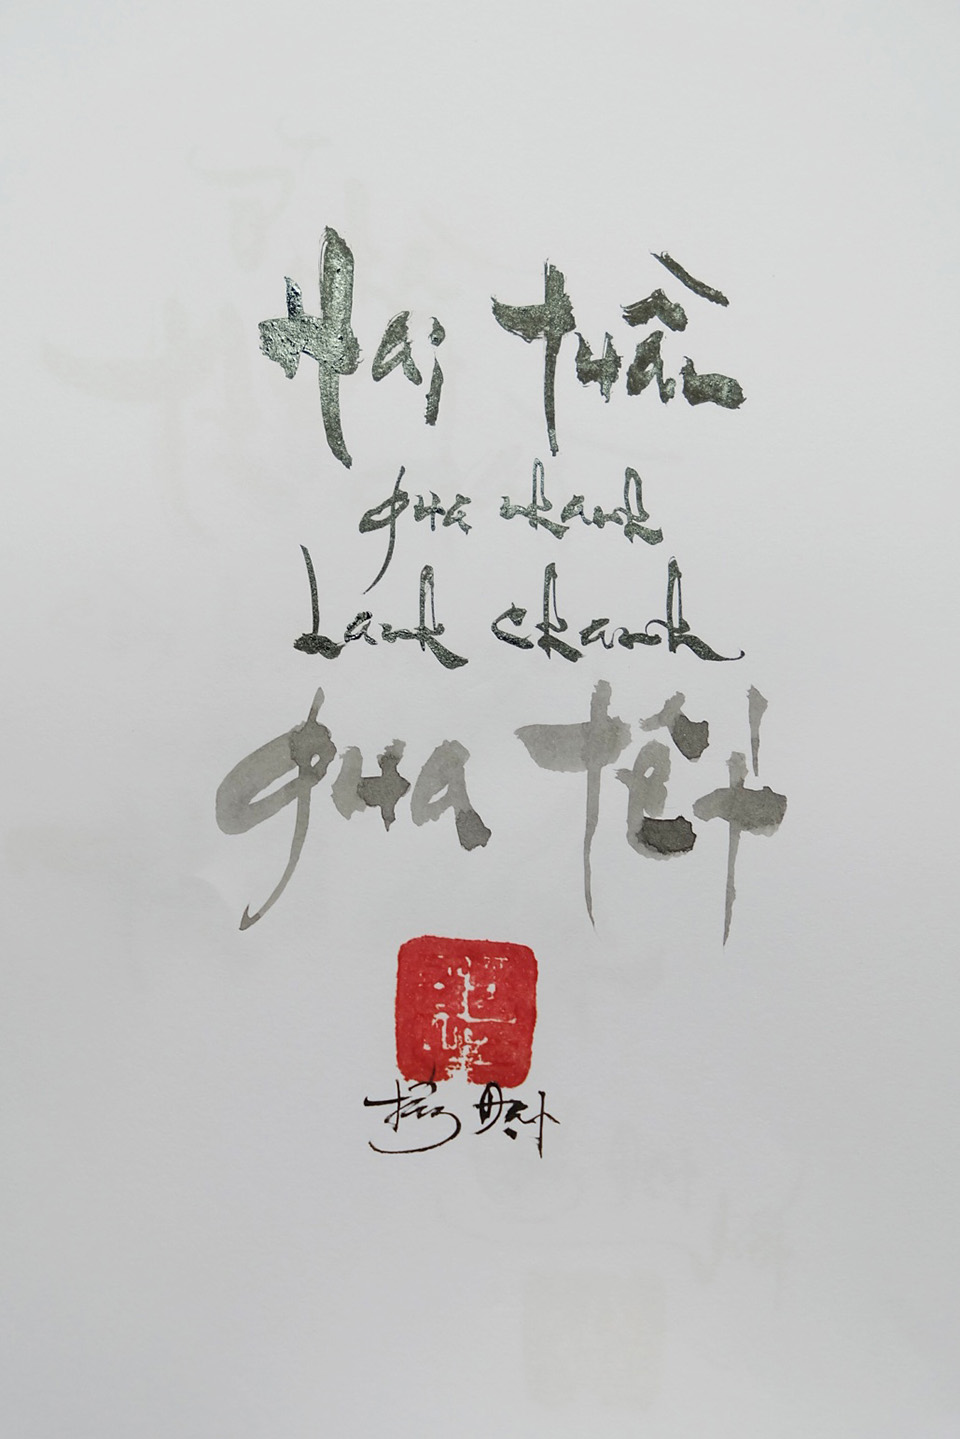 Hai tuần
qua nhanh
Lanh chanh
qua tết